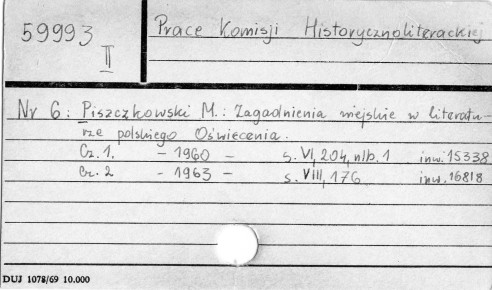 59993
II
Prace Komisji Historycznoliterackiej
Nr 6: Piszczkowski M.: Zagadnienia wiejskie w literatu-
rze polskiego Oświecenia.
Cz. 1. - 1960 - s. VI, 204, nlb. 1 inw. 15338
Cz. 2 - 1963 - s. VIII, 176 inw. 16818
DUJ 1078/69 10.000